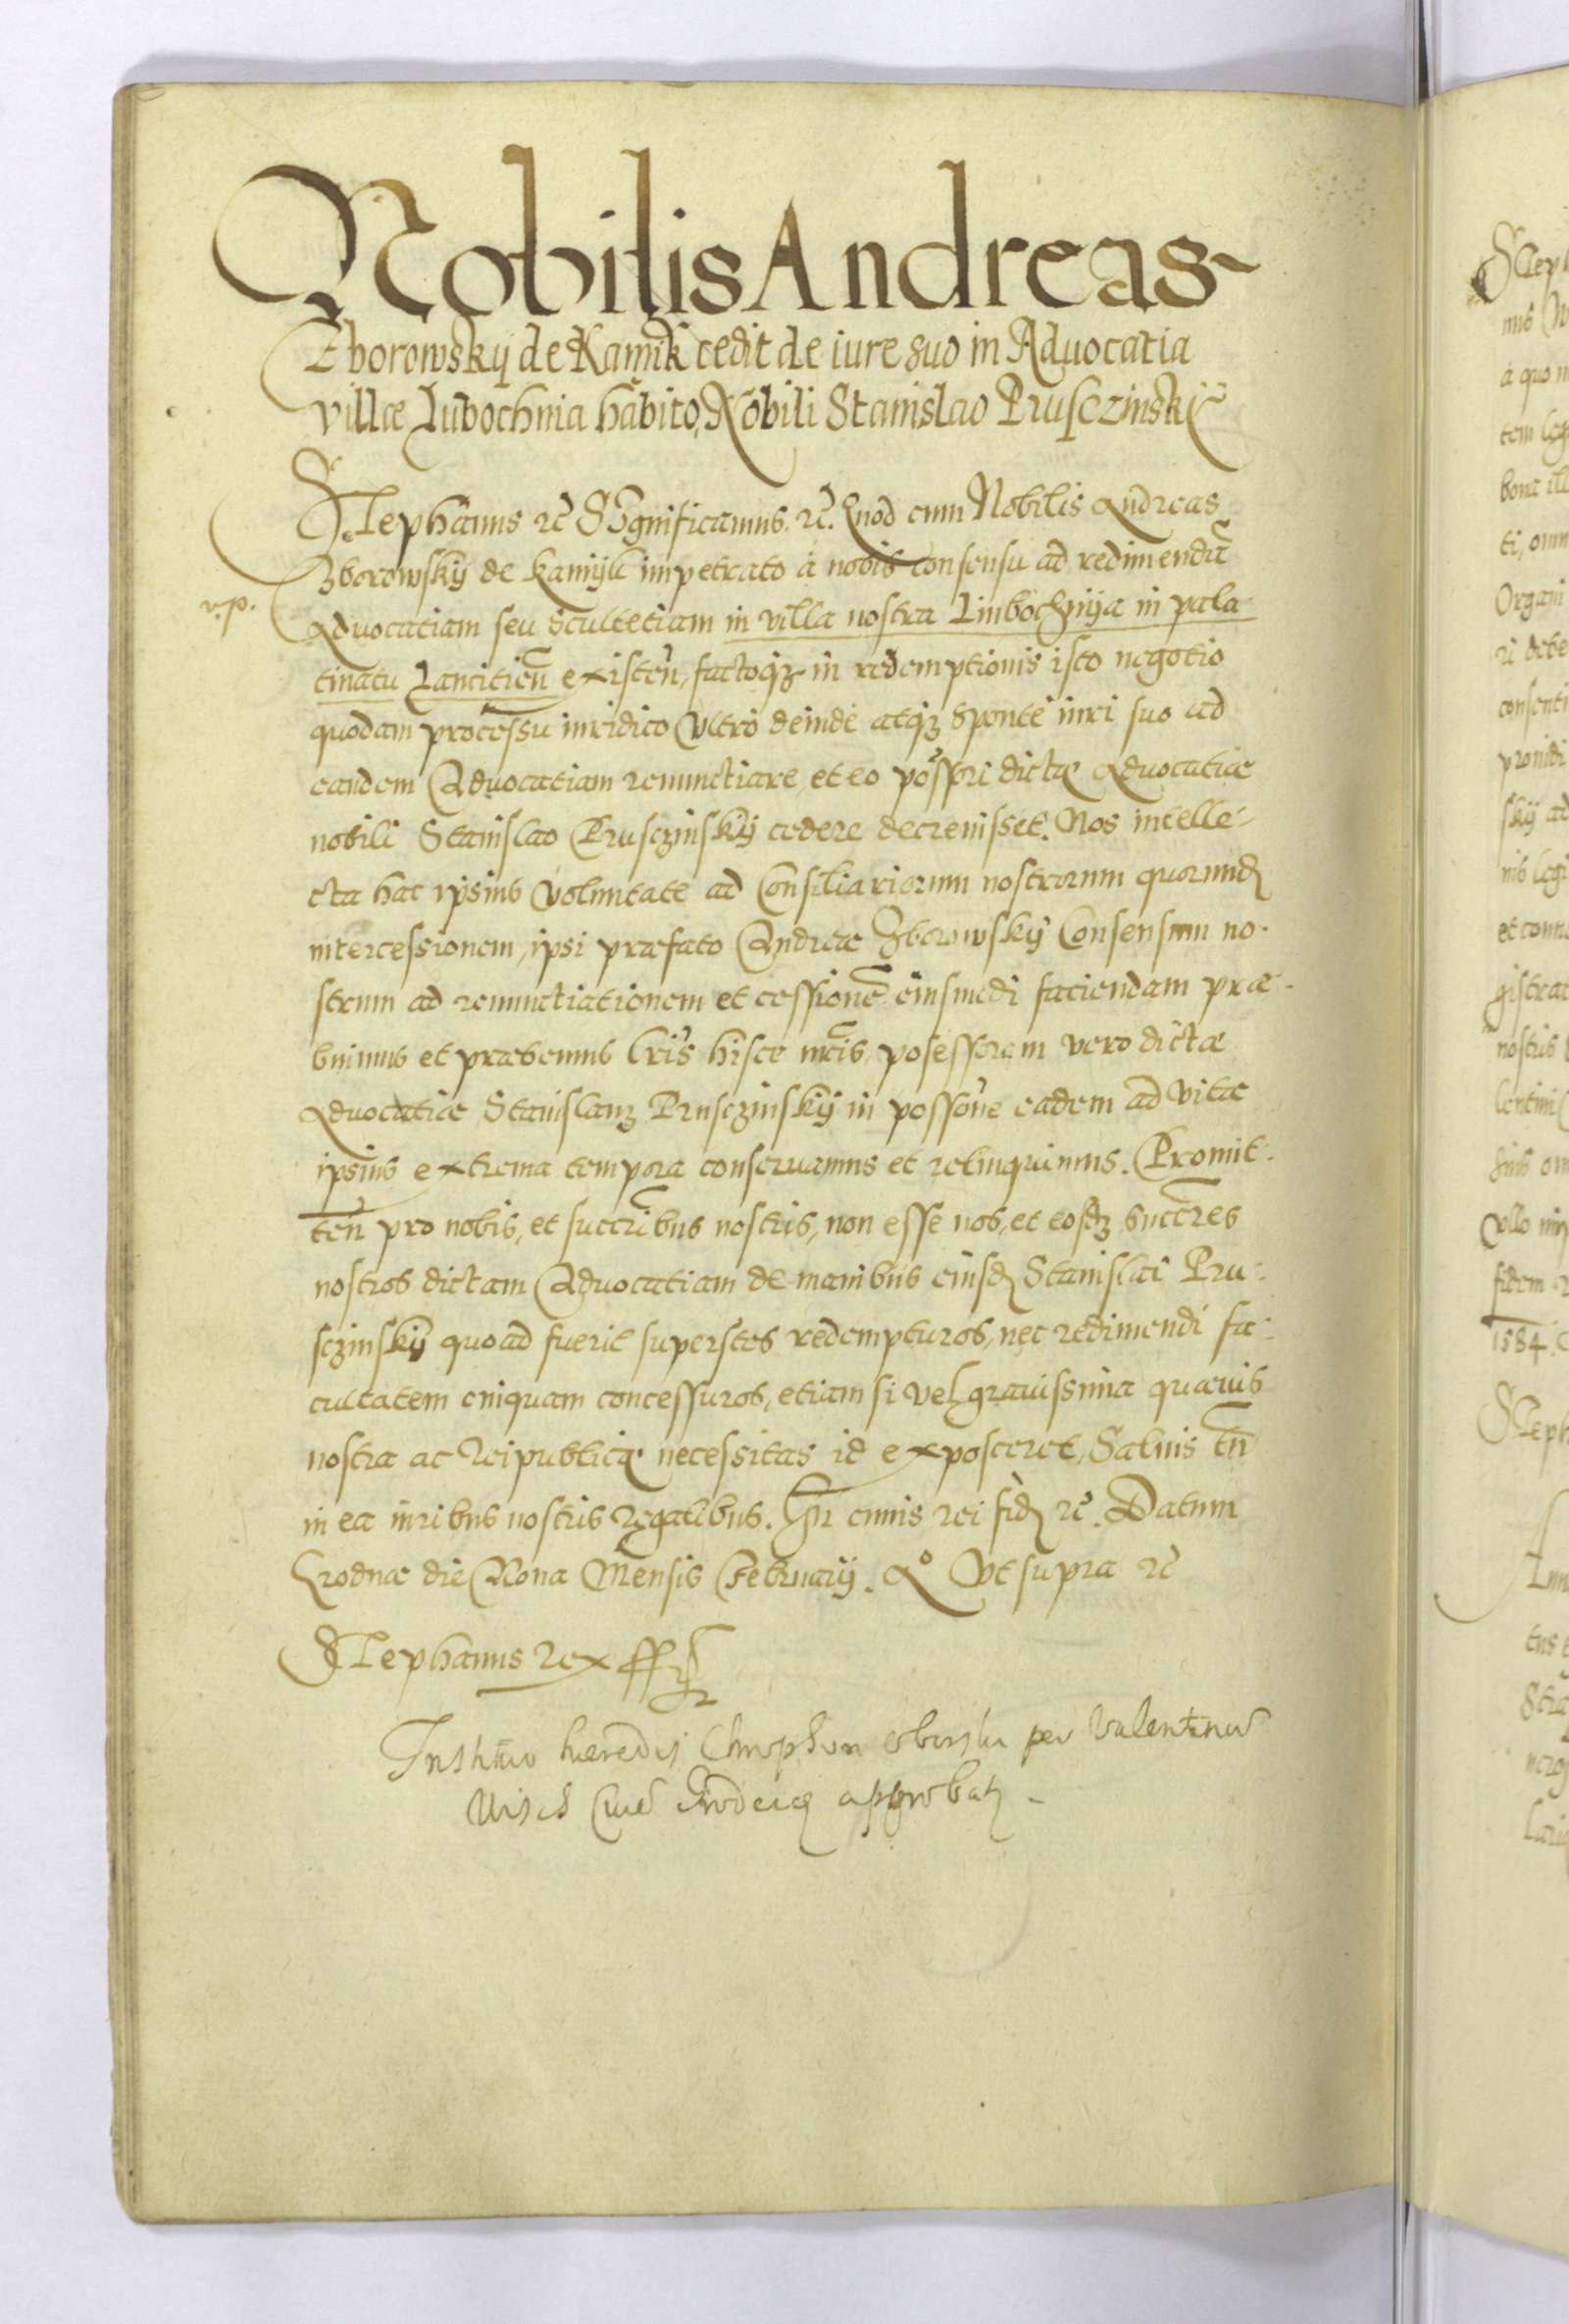 Nobilis Andreas
Zborowsky de Kamik cedit de iure suo in Aduocatia
villæ Lubochnia habito, Nobili Stanislao Prusczinskij
Stephanus rc̃ Significamus rc̃. Quod cum Nobilis Andreas
Zborowskij de Kamijk impetrato à nobis consensu ad redimendã
v.p.
Aduocatiam seu Scultetiam in villa nostra Linbochnÿa in pala
tinatu Lanciticñ existeñ, factoq̃ in redemptionis isto negotio
quodam processu iuridico vltrò deinde atq̃ sponte iuri suo ad
eandem Aduocatiam renunctiare, et eo posšori dictæ Aduocatiæ
nobili Stanislao Prusczinskij cedere decreuisset. Nos intelle-
cta hac ipsius voluntate ad Consiliariorum nostrorum quorund̃
intercessionem, ipsi præfato Andreæ Zborowskÿ Consensum no-
strum ad renunctiationem et cessionẽ eiusmodi faciendam præ-
buimus et præbemus lr̃is hisce nr̃is, posessorem vero dictæ
Aduocatiæ Stanislaum Prusczinskij in possõne eadem ad vitæ
ipsius extrema tempora conseruamus et relinquimus. Promit-
teñ pro nobis, et succr̃ibus nostris, non esse nos, et eosdem succr̃es
nostros dictam Aduocatiam de manibus eiusd̃ Stanislai Pru-
sczinskij quoad fuerit superstes redempturos, nec redimendi fa-
cultatem cuiquam concessuros, etiam si vel grauissima quæuis
nostra ac Reipublicæ necessitas id exposceret, Saluis tñ
in ea iuribus nostris regalibus. In cuius rei fid̃ rc̃. Datum
Grodnæ die Nona Mensis Februarij. Aº Vt supra rc̃
Stephanus Rex
per Valentinũ